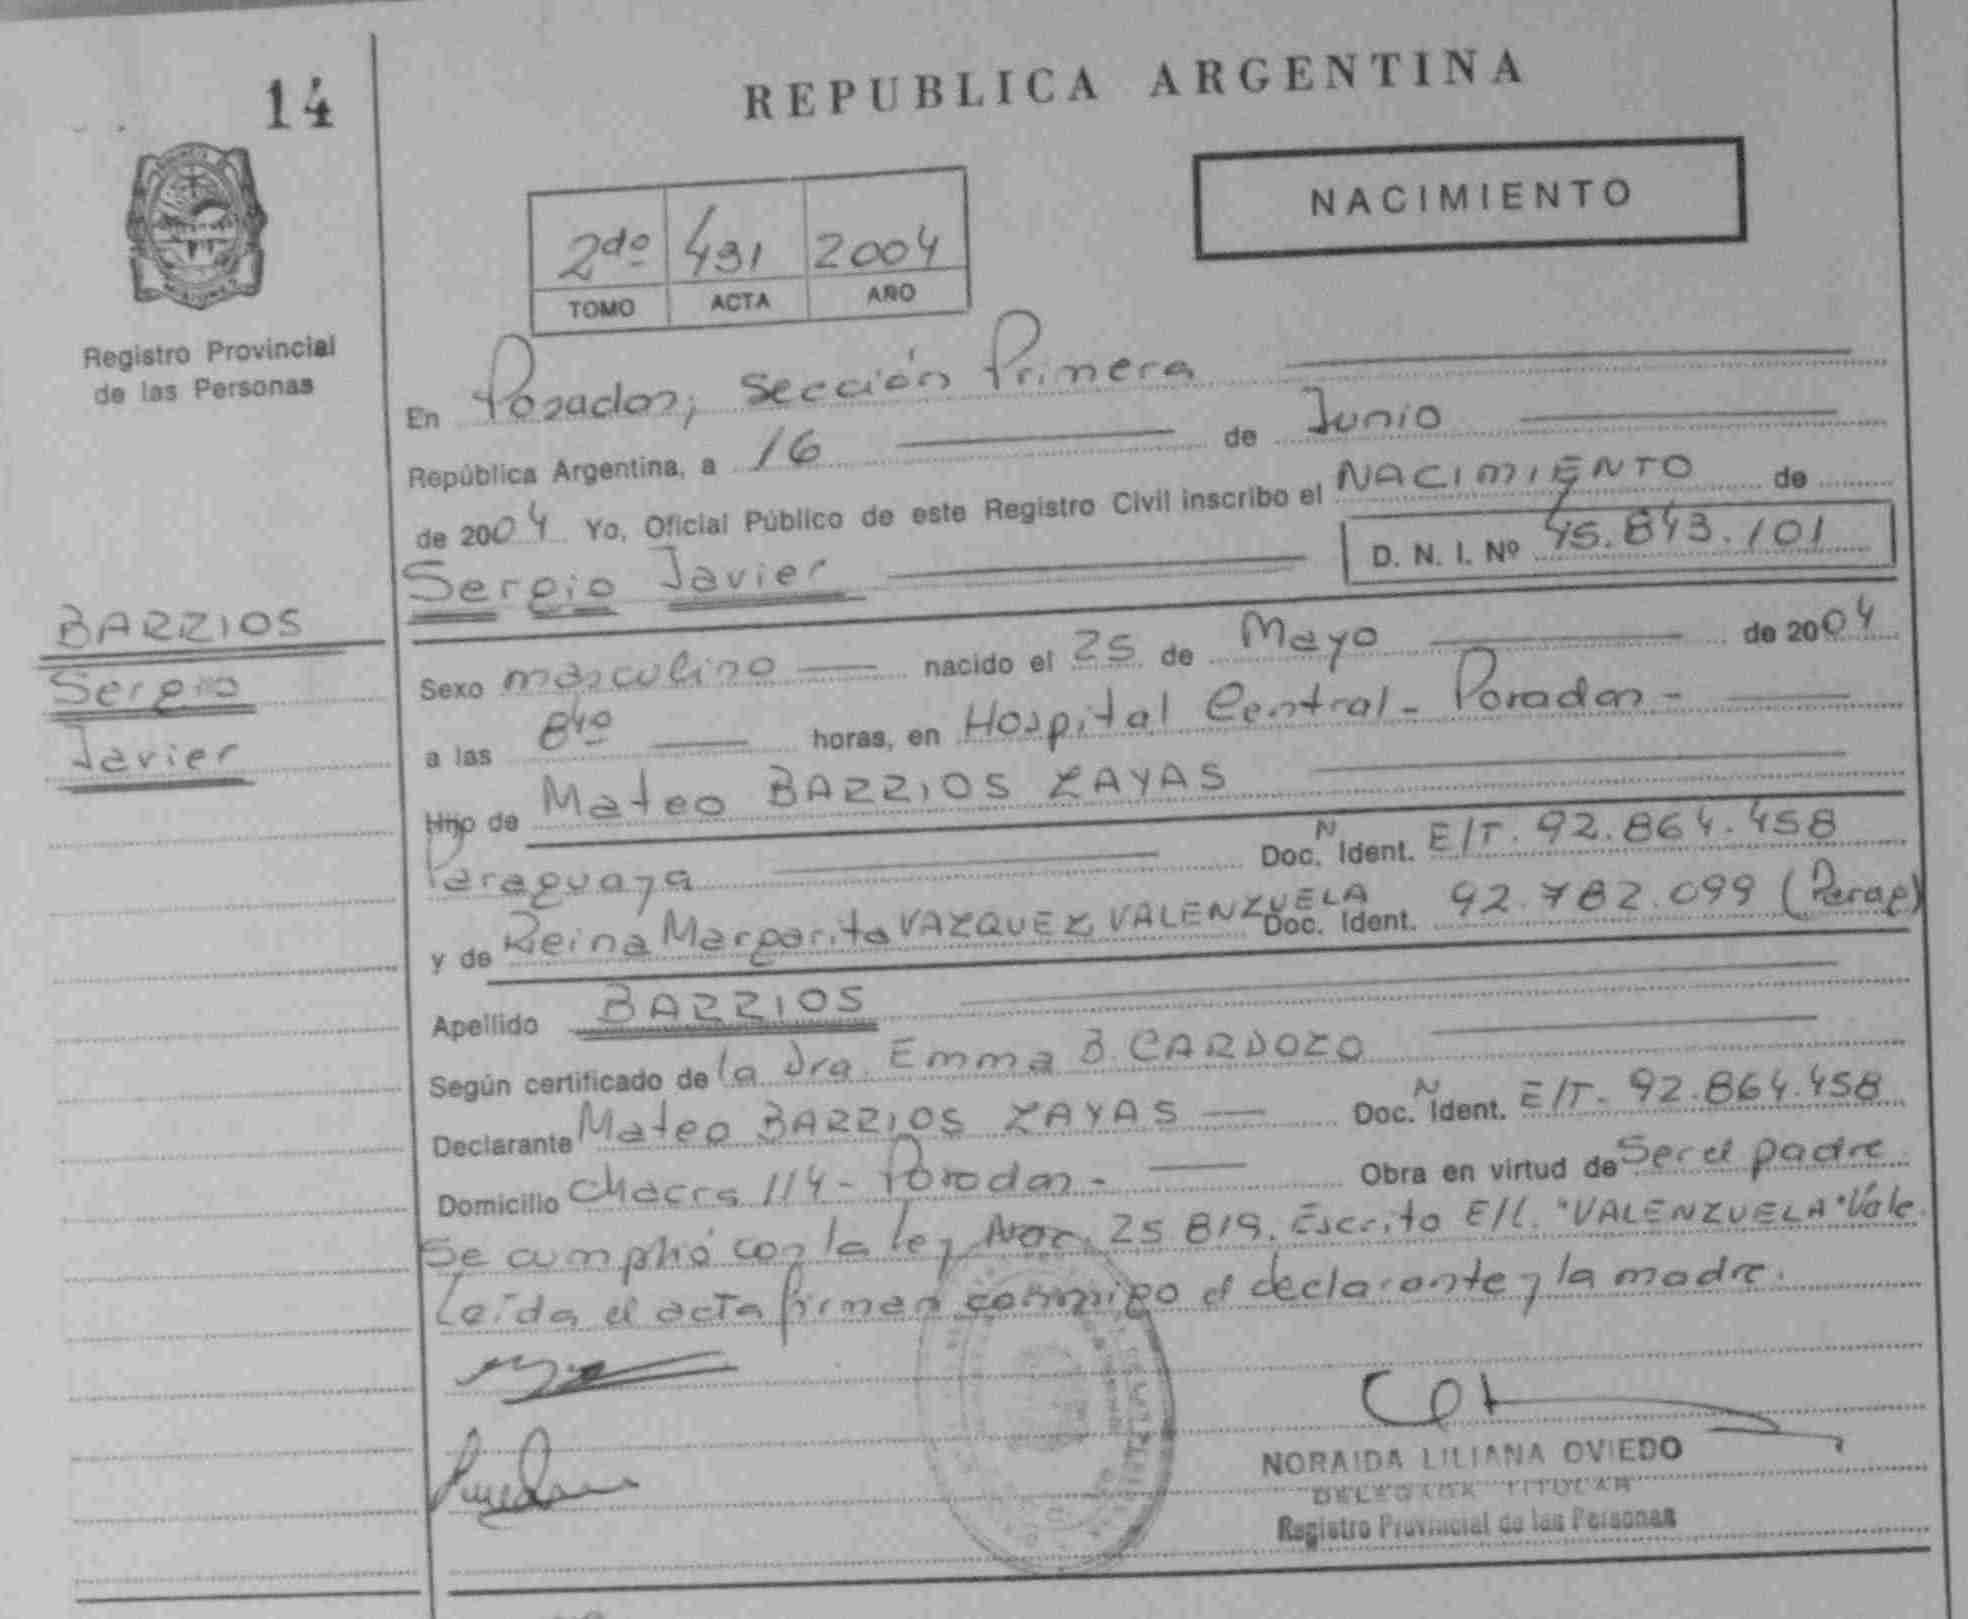 14
REPUBLICA ARGENTINA
NACIMIENTO
2do 431 2004
TOMO ACTA AÑO
Registro Provincial
de las Personas
En Posadas, Sección Primera
República Argentina, a 16 de Junio
de 2004 Yo, Oficial Público de este Registro Civil inscribo el NACIMIENTO de
D. N. I. Nº 45.843.101
Sergio Javier
BARRIOS
Sergio
Javier
Sexo masculino nacido el 25 de Mayo de 2004
a las 8 40 horas, en Hospital Central - Posadas -
Hijo de Mateo BARRIOS ZAYAS
Paraguaya Doc. N Ident. E/T. 92.864.458
y de Reina Margarita VAZQUEZ VALENZUELA Doc. Ident. 92.782.099 (Parag)
Apellido BARRIOS
Según certificado de la Dra. Emma B. CARDOZO
Declarante Mateo BARRIOS ZAYAS Doc. N Ident. E/T. 92.864.458
Domicilio Chacra 114 - Posadas - Obra en virtud de Ser el padre.
Se cumplió con la ley Nac. 25 819. Escrito E/l. "VALENZUELA" Vale.
Leída el acta firman conmigo el declarante y la madre.
NORAIDA LILIANA OVIEDO
DELEGADA TITULAR
Registro Provincial de las Personas